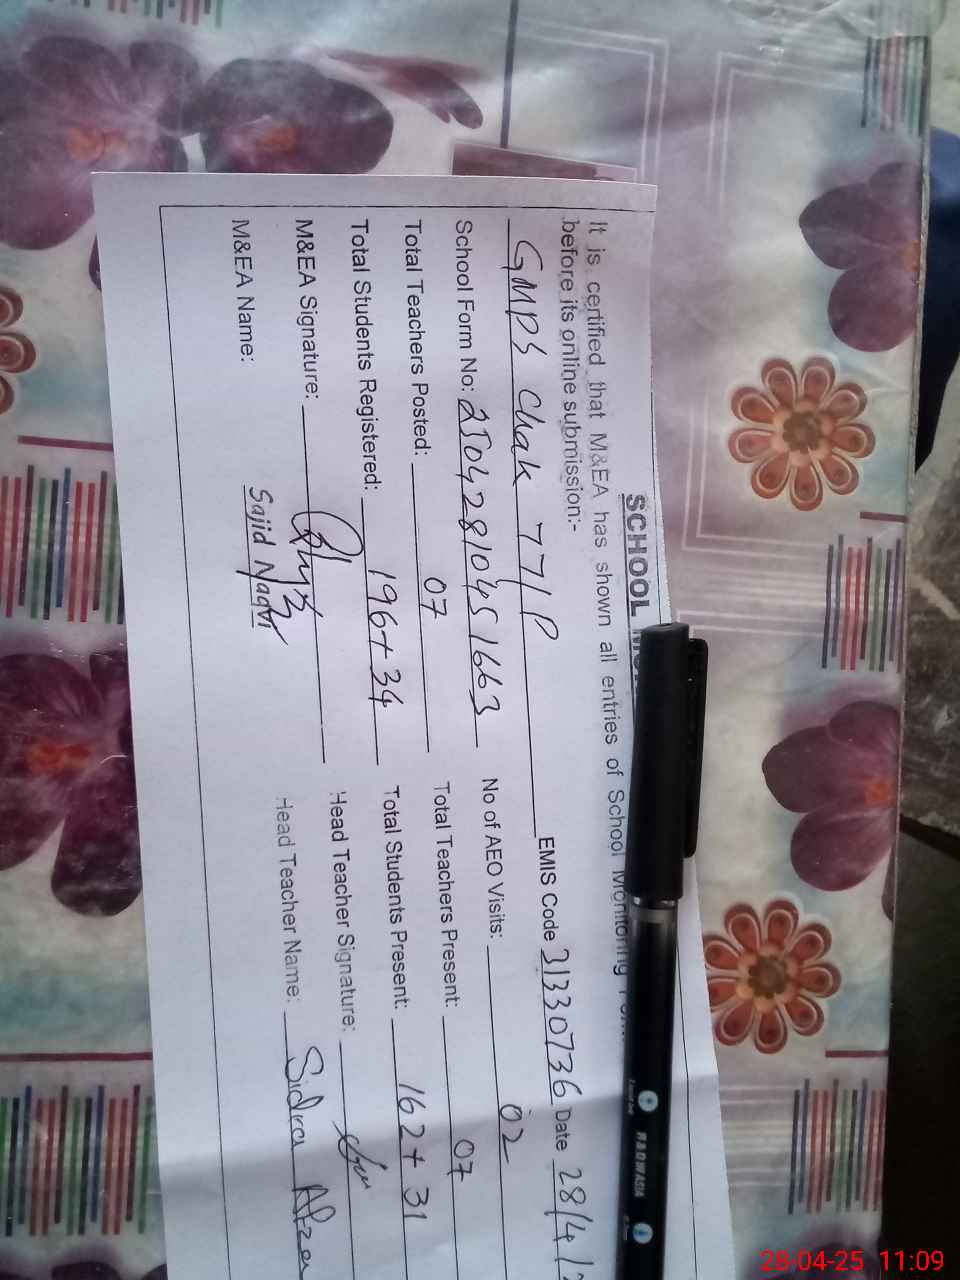 SCHOOL
It is certified that M&EA has shown all entries of School Monitoring
before its online submission:-
GMPS Chak 77/P EMIS Code 31330736 Date 28/4/2
School Form No: 25042810451663 No of AEO Visits: 02
Total Teachers Posted: 07 Total Teachers Present: 07
Total Students Registered: 196+34 Total Students Present: 162+31
M&EA Signature: Head Teacher Signature:
M&EA Name: Sajid Naqvi Head Teacher Name: Sidra Afza
28-04-25 11:09